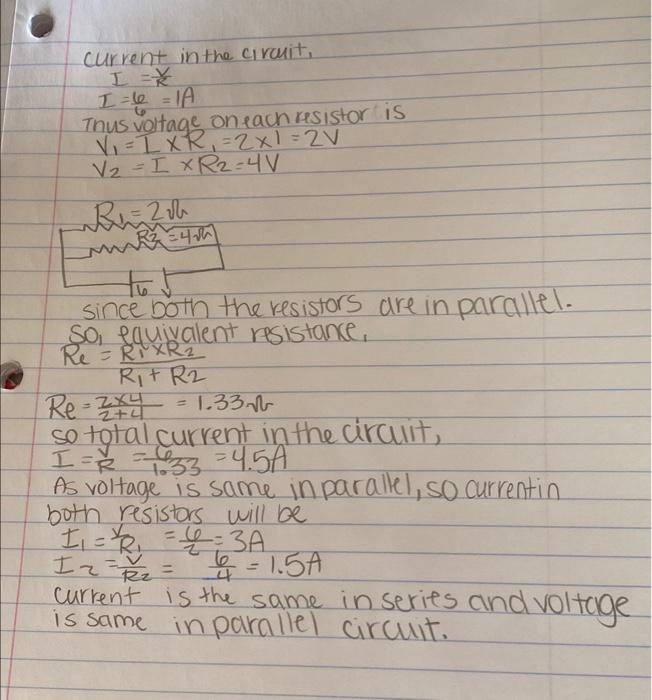 current in the circuit,
I = V/R
I = 6/6 = 1A
Thus voltage on each resistor is
V₁ = I × R₁ = 2 × 1 = 2V
V₂ = I × R₂ = 4V
R₁ = 2Ω
R₂ = 4Ω
6V
since both the resistors are in parallel.
so, equivalent resistance,
Re = R₁ × R₂ / R₁ + R₂
Re = 2×4 / 2+4 = 1.33Ω
so total current in the circuit,
I = V/R = 6/1.33 = 4.5A
As voltage is same in parallel, so current in
both resistors will be
I₁ = V/R₁ = 6/2 = 3A
I₂ = V/R₂ = 6/4 = 1.5A
current is the same in series and voltage
is same in parallel circuit.